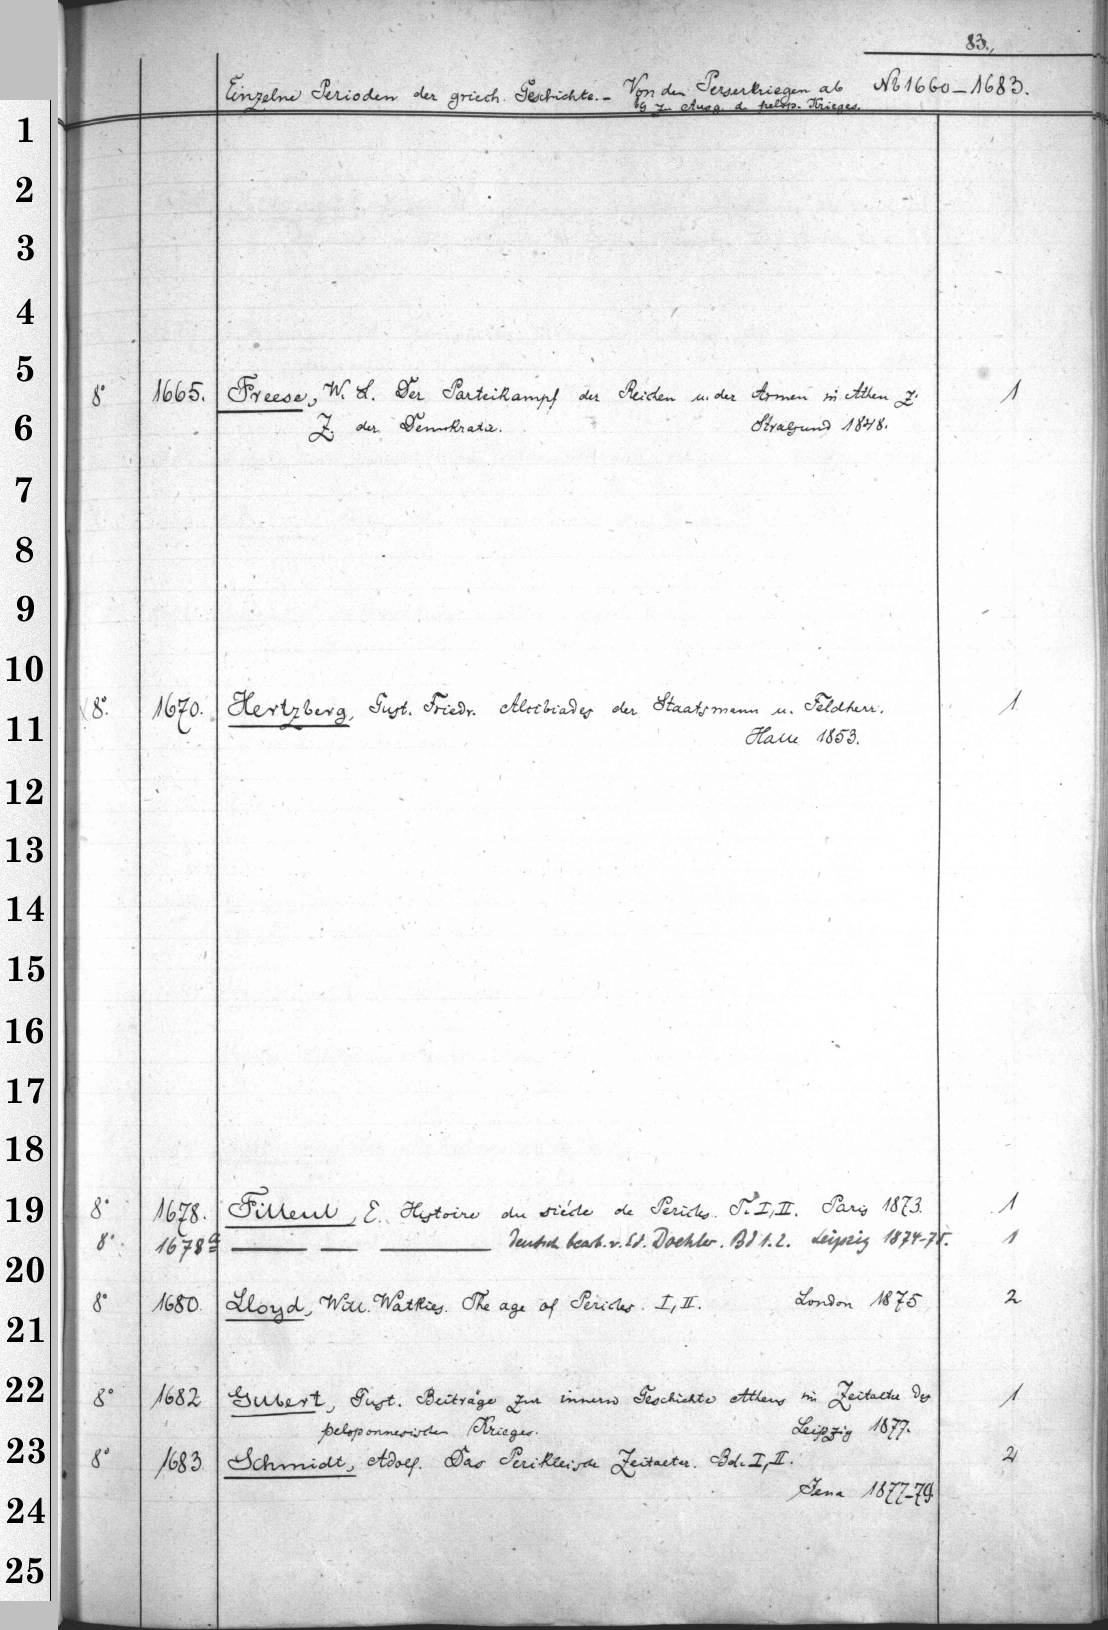 83.
Einzelne Perioden der griech. Geschichte. – Von den Perserkriegen ab № 1660–1683.
b z. Ausg. d. pelop. Krieges.
1
2
3
4
5
8° 1665. Freese, W. L. Der Parteikampf der Reichen u. der Armen in Athen z. 1
6
Z. der Demokratie. Stralsund 1848.
7
8
9
10
8°. 1670. Hertzberg, Gust. Friedr. Alcibiades der Staatsmann u. Feldherr. 1
11
Halle 1853.
12
13
14
15
16
17
18
19
8° 1678. Filleul, E. Histoire du siécle de Périclès. T. I, II. Paris 1873. 1
8° 1678a — — — Deutsch bearb. v. Ed. Doehler. Bd 1. 2. Leipzig 1874–75. 1
20
8° 1680 Lloyd, Will. Watkies. The age of Pericles. I, II. London 1875 2
21
22
8° 1682 Gilbert, Gust. Beiträge zur innern Geschichte Athens im Zeitalter des 1
peloponnesischen Krieges. Leipzig 1877.
23
8° 1683 Schmidt, Adolf. Das Perikleische Zeitalter. Bd. I, II. 2
Jena 1877–79
24
25